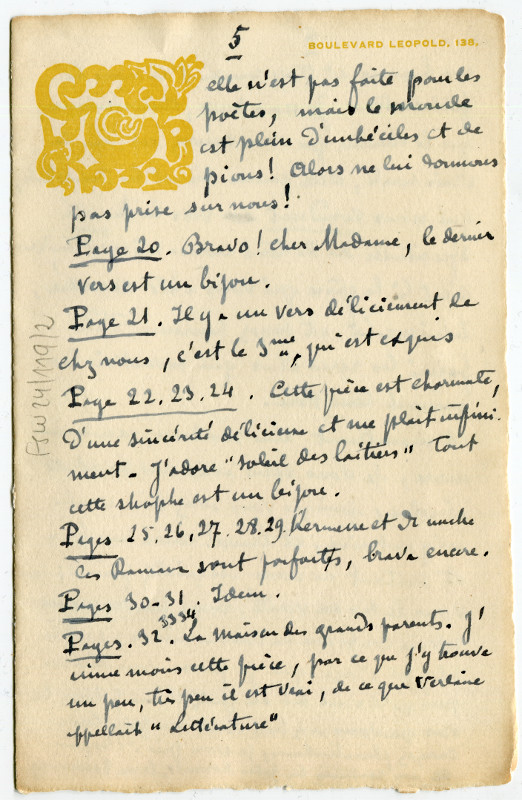 5
BOULEVARD LEOPOLD, 138.
elle n'est pas faite pour les
poètes, mais le monde
est plein d'imbéciles et de
pions! Alors ne lui donnons
pas prise sur nous!
Page 20. Bravo! cher Madame, le dernier
vers est un bijou.
Page 21. Il y a un vers délicieusement de
chez nous, c'est le 3me, qui est exquis
Page 22.23.24. Cette pièce est charmante,
D'une sincérité délicieuse et me plait infini-
ment - J'adore "soleil des laitiers" Tout
cette strophe est un bijou.
Pages 25.26,27.28.29. Kermesse et Dimanche
des Rameaux sont parfaits, brava encore.
Pages 30-31. Idem.
Pages. 32. 33 34, La maison des grands parents. J'
aime moins cette pièce, par ce que j'y trouve
un peu, très peu il est vrai, de ce que Verlaine
appellait "Littérature"
FSW24/119/2